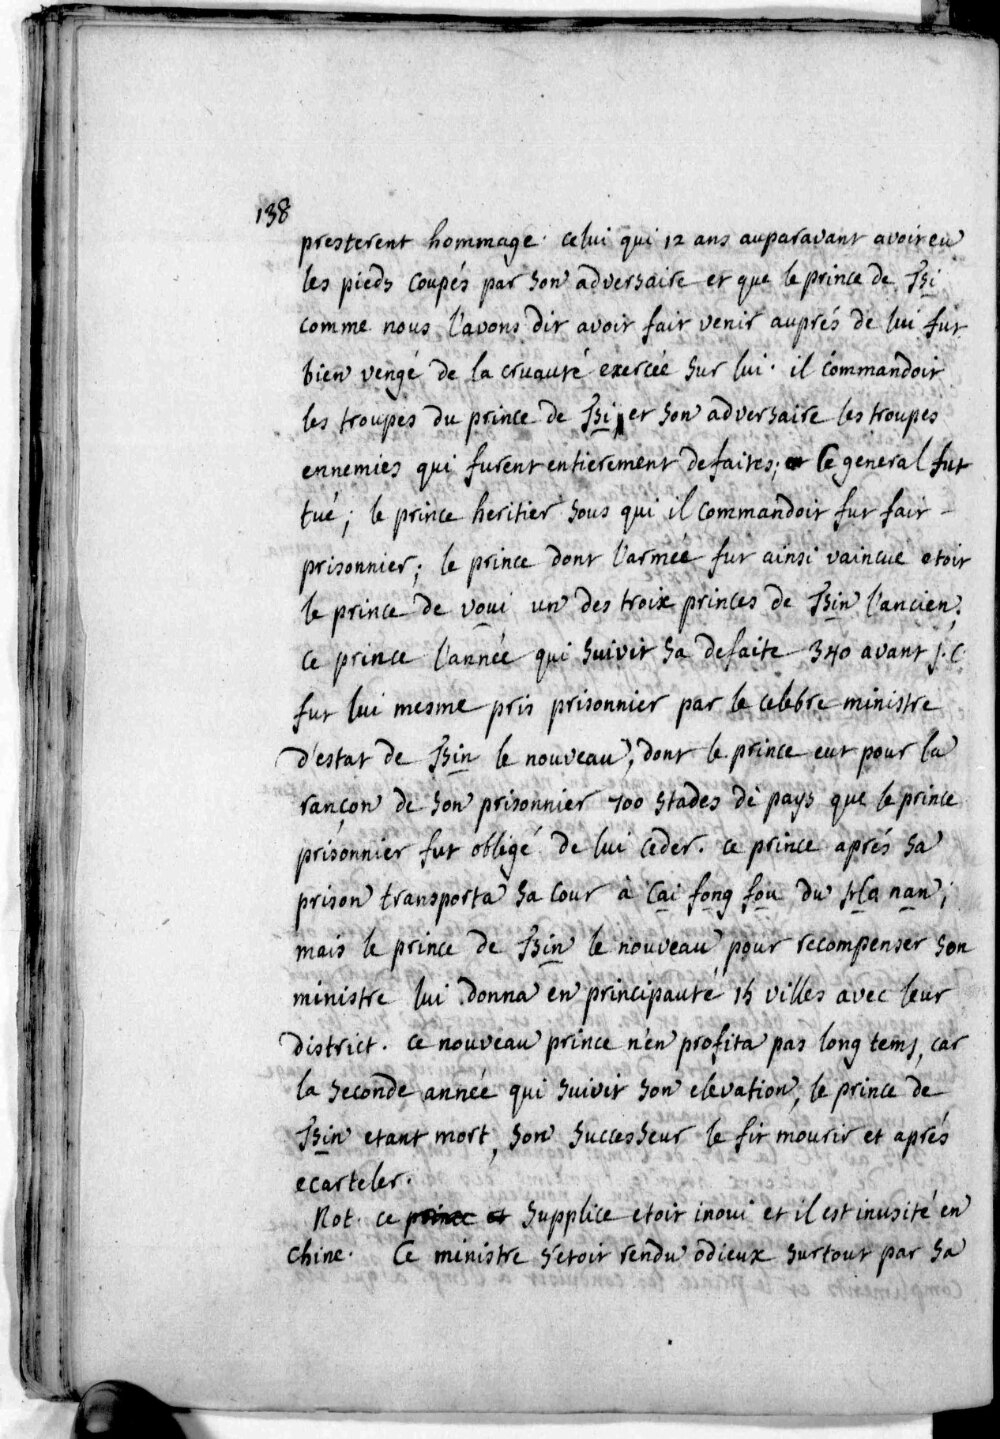 138
presterent hommage. celui qui 12 ans auparavant avoit eu
les pieds coupés par son adversaire et que le prince de Tsi
comme nous l'avons dit avoit fait venir auprés de lui fut
bien vengé de la cruauté exercée sur lui. il commandoit
les troupes du prince de Tsi, et son adversaire les troupes
ennemies qui furent entierement defaites; Ce general fut
tué; le prince heritier sous qui il commandoit fut fait
prisonnier; le prince dont l'armée fut ainsi vaincue etoit
le prince de voui un des troix princes de Tsin l'ancien;
ce prince l'année qui suivit sa defaite 340 avant J.C
fut lui mesme pris prisonnier par le celebre ministre
d'estat de Tsin le nouveau, dont le prince eut pour la
rançon de son prisonnier 700 stades de pays que le prince
prisonnier fut obligé de lui ceder. ce prince aprés sa
prison transporta sa cour à Cai fong fou du Ho nan;
mais le prince de Tsin le nouveau pour recompenser son
ministre lui donna en principauté 15 villes avec leur
district. ce nouveau prince n'en profita pas long tems, car
la seconde année qui suivit son elevation, le prince de
Tsin etant mort, son successeur le fit mourir et aprés
ecarteler.
Not. ce prince et supplice etoit inoui et il est inusité en
chine. Ce ministre s'etoit rendu odieux surtout par sa